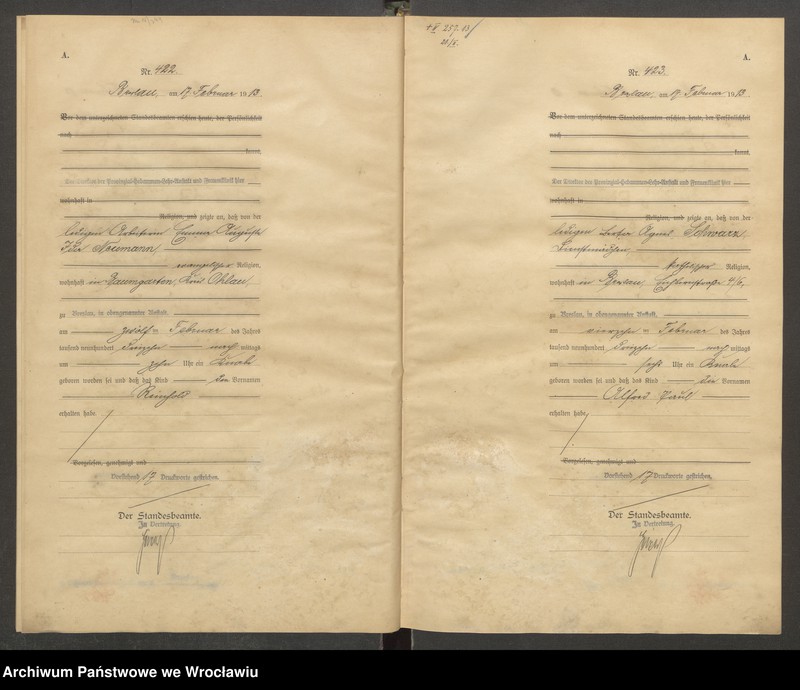 A.
Nr. 422.
Breslau, am 17. Februar 1913.
Vor dem unterzeichneten Standesbeamten erschien heute, der Persönlichkeit
nach
kannt,
Der Direktor der Provinzial-Hebammen-Lehr-Anstalt und Frauenklinik hier
wohnhaft in
Religion, und zeigte an, daß von der
ledigen Arbeiterin Emma Auguste
Ida Neumann
evangelischer Religion,
wohnhaft in Baumgarten, Kreis Ohlau,
zu Breslau, in obengenannter Anstalt,
am zwölften Februar des Jahres
tausend neunhundert dreizehn nachmittags
um zehn Uhr ein Knabe
geboren worden sei und daß das Kind den Vornamen
Reinhold
erhalten habe.
Vorgelesen, genehmigt und
Vorstehend 17 Druckworte gestrichen.
Der Standesbeamte.
In Vertretung.
+ 257.13
20/5.
A.
Nr. 423.
Breslau, am 17. Februar 1913.
Vor dem unterzeichneten Standesbeamten erschien heute, der Persönlichkeit
nach
kannt,
Der Direktor der Provinzial-Hebammen-Lehr-Anstalt und Frauenklinik hier
wohnhaft in
Religion, und zeigte an, daß von der
ledigen Agnes Schwarz,
Dienstmädchen
katholischer Religion,
wohnhaft in Breslau, 4/6,
zu Breslau, in obengenannter Anstalt,
am vierzehnten Februar des Jahres
tausend neunhundert dreizehn nachmittags
um sechs Uhr ein Knabe
geboren worden sei und daß das Kind die Vornamen
Alfred Paul
erhalten habe.
Vorgelesen, genehmigt und
Vorstehend 17 Druckworte gestrichen.
Der Standesbeamte.
In Vertretung.
Archiwum Państwowe we Wrocławiu